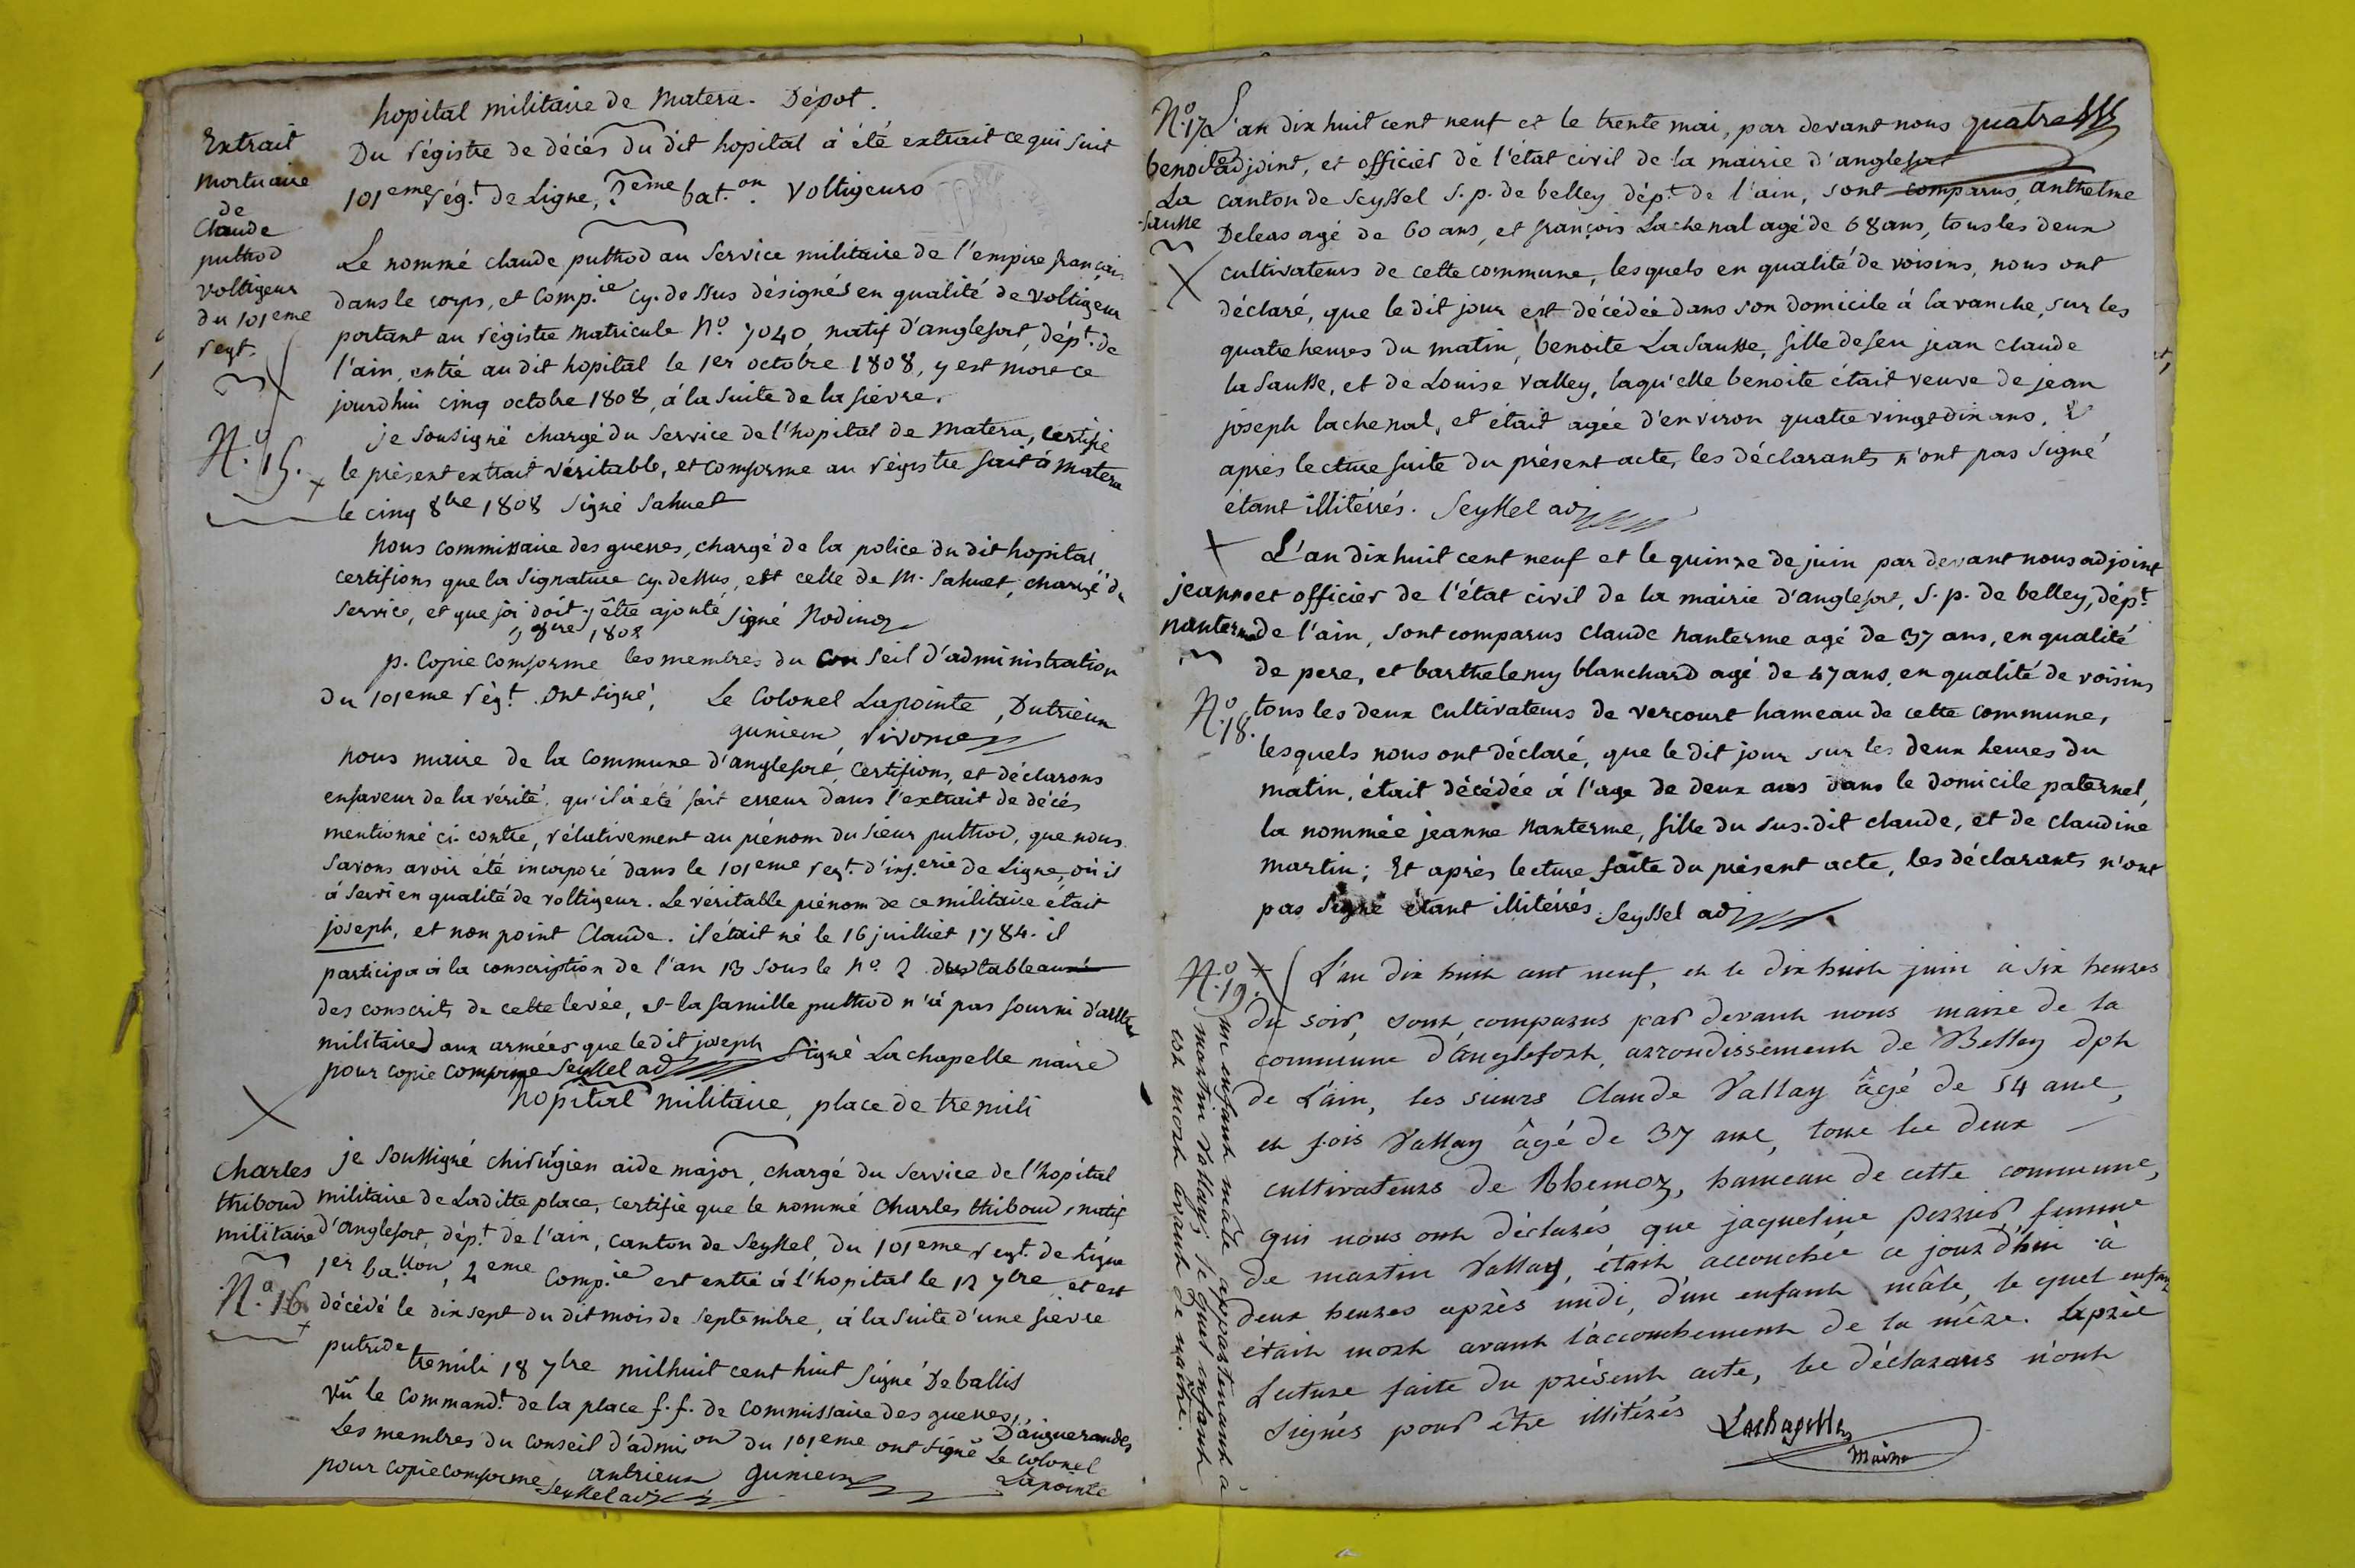 hopital militaire de Matera. Dépot.
Extrait
mortuaire
de
Claude
puthod
voltigeur
du 101eme
regt.
Du régistre de décés du dit hopital à été extrait ce qui suit
101eme rég.t de Ligne, bat.on Voltigeurs
Le nommé claude puthod au Service militaire de l'empire françai
dans le corps, et Comp.ie cy. dessus désignés en qualité de voltigeur
portant au régistre matricule N.o 7040, natif d'anglefort, dép.t de
l'ain, entré au dit hopital le 1er octobre 1808, y est mort ce
jourdhui cinq octobre 1808, à la suite de la fièvre.
N.o 15.
je sousigné chargé du service de l'hopital de Matera, certifie
le présent extrait véritable, et comforme au régistre fait à Matera
le cinq 8bre 1808 Signé Sahuet
Nous commissaire des guerres, chargé de la police du dit hopital,
certifions que la signature cy. dessus, est celle de M. Sahuet, chargé du
Service, et que foi doit y être ajouté Signé Nodinoz
8bre 1808
p. Copie Comforme les membres du Conseil d'administration
du 101eme rég.t ont signé, Le Colonel Lapointe, Dutrieux
gunieux
nous maire de la Commune d'anglefort, Certifions, et déclarons
enfaveur de la vérité, qu'il à été fait erreur dans l'extrait de décés
mentionné ci. contre, rélativement au prénom du sieur puthod, que nous
savons avoir été incorporé dans le 101eme reg.t d'inf.erie de Ligne, où il
à servi en qualité de voltigeur. Le véritable prénom de ce militaire était
joseph, et non point Claude. il était né le 16 juillet 1784. il
participa à la conscription de l'an 13 sous le N.o 2 du tableau
des conscrits de cette levée, et la famille puthod n'à pas fourni d'autre
militaire aux armées que le dit joseph Signé Lachapelle maire
pour copie comforme Seyssel adj
hopital militaire, place de tremili
Charles
thiboud
militaire
N.o 16
je soussigné chirurgien aide major, chargé du service de l'hopital
militaire de Laditte place, certifie que le nommé Charles thiboud, natif
d'anglefort, dép.t de l'ain, canton de Seyssel, du 101eme reg.t de Ligne
1er ba.llon, 4eme Comp.ie est entré à l'hopital le 12 7bre, et est
décédé le dix sept du dit mois de septembre, à la suite d'une fièvre
putride
tremili 18 7bre mil huit cent huit Signé Deballis
vû le Command.t de la place f.f. de commissaire des guerres, D'aiguerandes
Les membres du Conseil d'admi on du 101eme ont signé Le Colonel
Lapointe
pour copie comforme antrieux gunieux
Seyssel adj
N.o 17
benoite
La
Sausse
L'an dix huit cent neuf et le trente mai, par devant nous quatre
adjoint, et officier de l'état civil de la mairie d'anglefort
canton de Seyssel S. p. de belley dép.t de l'ain, sont comparus, anthelme
Deleas agé de 60 ans, et françois Lachenal agé de 68 ans, tous les deux
cultivateurs de cette commune, lesquels en qualité de voisins, nous ont
déclaré, que le dit jour est décédée dans son domicile à lavanche, sur les
quatre heures du matin, benoite La Sausse, fille de feu jean claude
la Sausse, et de Louise valley, laqu'elle benoite était veuve de jean
joseph lachenal, et était agée d'environ quatre vingt dix ans. &
après lecture faite du présent acte, les déclarants n'ont pas signé
étant illitérés. Seyssel adj
jeanne
nanterme
N.o 18.
L'an dix huit cent neuf et le quinze de juin par devant nous adjoint
et officier de l'état civil de la mairie d'anglefort, S. p. de belley, dép.t
de l'ain, sont comparus Claude Nanterme agé de 37 ans, en qualité
de pere, et barthelemy blanchard agé de 47 ans, en qualité de voisins
tous les deux cultivateurs de vercourt hameau de cette commune,
lesquels nous ont déclaré, que le dit jour sur les deux heures du
matin, était décédée à l'age de deux ans dans le domicile paternel,
la nommée jeanne Nanterme, fille du sus. dit claude, et de claudine
martin; Et après lecture faite du présent acte, les déclarants n'ont
pas signé étant illitérés. Seyssel adj
N.o 19.
un enfant mâle appartenant à
martin Vallay, le quel enfant
est mort avant de naitre.
L'an dix huit cent neuf, et le dix huit juin à six heures
du soir, sont comparus par devant nous maire de la
commune d'Anglefort, arrondissement de Belley dpt
de L'ain, les sieurs Claude Vallay âgé de 54 ans,
et fois Vallay âgé de 37 ans, tous les deux
cultivateurs de Rhemoz, hameau de cette commune,
qui nous ont déclarés, que jaqueline perrier, femme
de martin Vallay, était accouchée ce jour d'hui à
deux heures après midi, d'un enfant mâle, le quel enfant
était mort avant l'accouchement de la mère. Après
Lecture faite du présent acte, les déclarans n'ont
signés pour être illitérés Lachapelle
maire